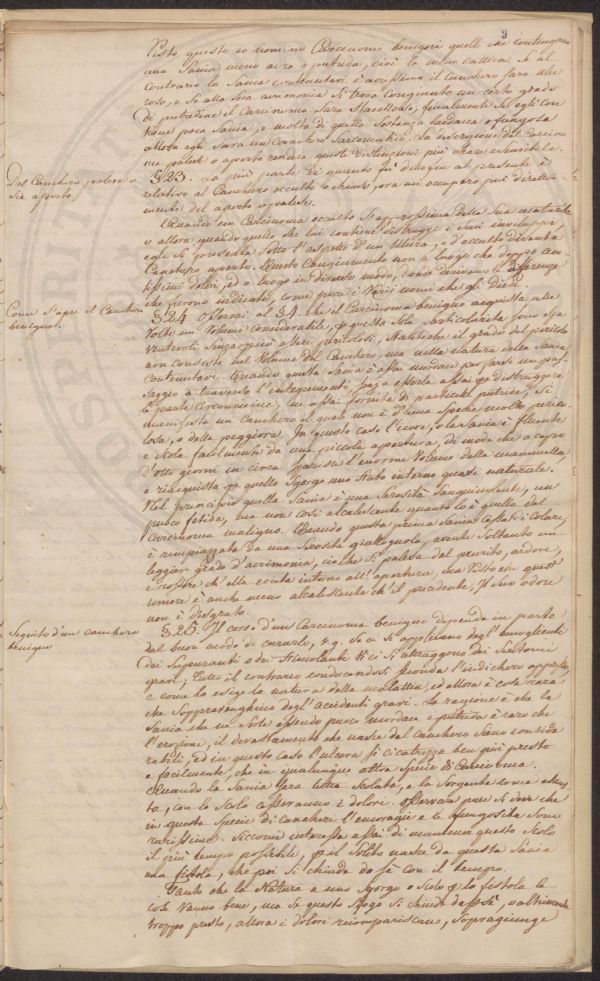 9
Posto questo io nomino Carcinomi benigni quelli che contengano
una Sania meno acre e putrida, cioè la meno cattiva. Se al
contrario la Sania contenutavi è acrissima il canchero sarà ulce
roso, e se alla sua acrimonia si trova congiunto un certo grado
di putredine il Carcinoma sarà sfacelloso; finalmente se egli con
tiene poca Sania, e molta di quella sostanza lardacea o fungosa
allora egli sarà un canchero Sarcomatico. La descrizione del Carcino
ma palese o aperto renderà queste distinzioni più chiare ed sensibili.
§ 23. La più parte di quanto fu dichiarato al presente è
Del Canchero palese o
sia aperto.
relativo al Canchero occulto o chiuso, ora mi occuperò più diretta-
mente del aperto o palese.
Quando un Carcinoma occulto s'approssima della sua maturità,
o allora quando quello che lui contiene distrugge i suoi inviluppi,
egli si presenta sotto l'aspetto d'un Ulcera, e d'occulto diventa
Canchero aperto. Questo cangiamento non à luogo che doppo an-
tissimi dolori, ed à luogo in diverso modo, donde derivano le differenze
che furono indicate, come pure i varii nomi che gli diedi.
Come s'apre il Canchero
benigno.
§ 24. Osservai al § 4. che il Carcinoma benigno acquista alle
volte un Volume considerabile, e questa sola particolarità sono spa
ventevoli senza perciò essere pericolosi, stanteche il grado del pericolo
non consiste nel Volume del Canchero, ma nella natura della Sania
contenutavi. Quando questa Sania è assai mordace per farsi un pas
saggio a traverso l'integumenti senza esserla assai per distruggere
le parti circonvicine, ne assai fornita di particelle putride, si
manifesta un canchero il quale non è d'una specie molto perico-
losa, o della peggiore. In questo caso l'icore, o la Sania è fluente
e scola facilmente da una piccola apertura, di modo che a capo
d'otto giorni in circa sparisce l'enorme Volume della mammella,
e riacquista per quello sgorgo uno stato interno quasi naturale.
Nel principio quella Sania è una Serosità Sanguinolente, un
puoco fetida, ma non così alcalescente quanto lo è quella del
Carcinoma maligno. Quando questa prima Sania cessa di colare,
è rimpiazzata da una Sierosità giallognola, avente soltanto un
leggier grado d'acrimonia, ciò che si palesa dal prurito, ardore,
e rossore ch'ella eccita intorno all'apertura, ma visto che quest'
umore è anche meno alcalescente ch'il precedente, il suo odore
non è disgrato.
Seguito d'un canchero
benigno
§ 25. Il corso d'un Carcinoma benigno dipende in parte
dal buon modo di curarlo, v. g. se ci si applicano degl'emollienti
dei supuranti o dei stimolante vi ci si attraggono dei sintomi
gravi; Tutto il contrario conducendosi secondo l'indichero appresso,
e come lo esige la natura della malattia, ed allora è cosa rara
che sopravenghino degl'accidenti gravi. La ragione è che la
Sania che n'esce essendo puoco mordace e putrida è raro che
l'erosione, il devastamento che nasce dal canchero sieno conside
rabili, ed in questo caso l'ulcera si cicatrizza ben più presto
e facilmente, che in qualunque altra specie di Carcinoma.
Quando la Sania sarà tutta scolata, e la Sorgente come exaus
ta, con lo scolo cesseranno i dolori. Osservare pure si deve che
in questa specie di cancheri l'emoragie e le fungosità sono
rarissime. Siccome interessa assai di mantener questo scolo
il più tempo possibile, per il solito nasce da questa Sania
una fistola, che poi si chiude da sè con il tempo.
Tanto che la Natura à uno sgorgo o scolo per la fistola le
cose vanno bene, ma se questo sfogo si chiude da sè, o altrimente
troppo presto, allora i dolori ricompariscano, sopragiunge